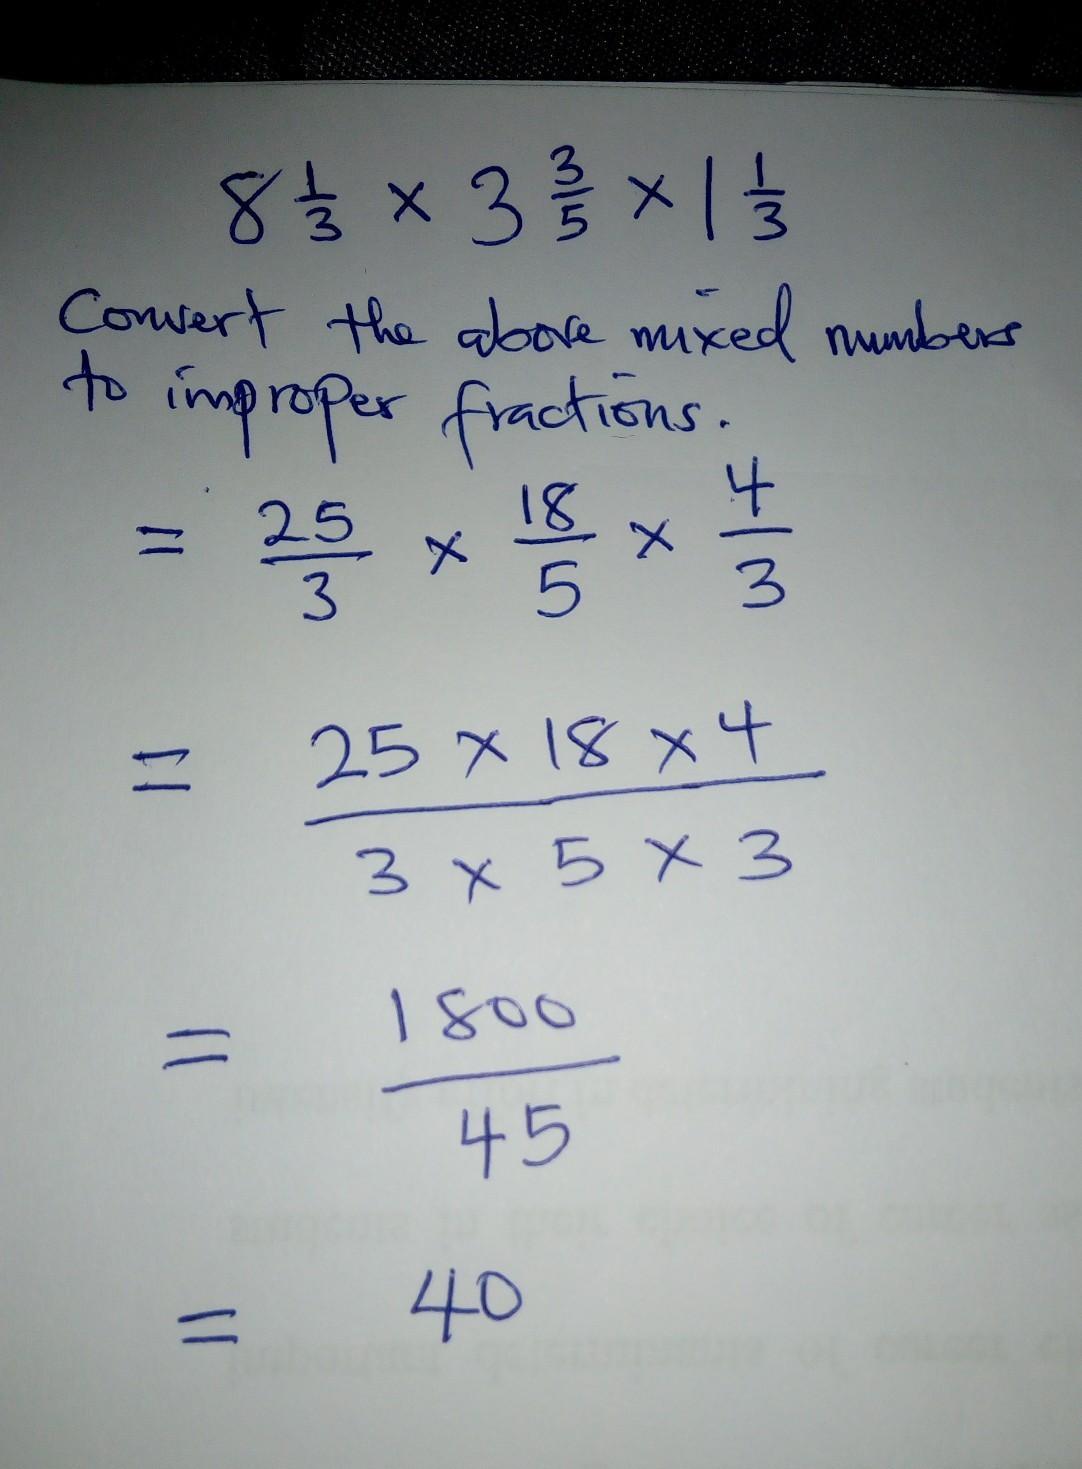 8 1/3 × 3 3/5 × 1 1/3
Convert the above mixed numbers
to improper fractions.
= 25/3 × 18/5 × 4/3
= 25 × 18 × 4 / 3 × 5 × 3
= 1800/45
= 40